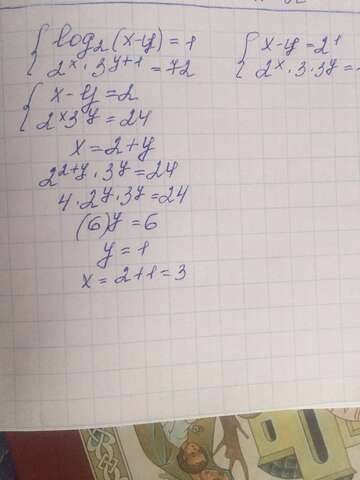 log₂(x-y)=1
2ˣ·3ʸ⁺¹=72
x-y=2¹
2ˣ·3·3ʸ=
x-y=2
2ˣ3ʸ=24
x=2+y
2²⁺ʸ·3ʸ=24
4·2ʸ·3ʸ=24
(6)ʸ=6
y=1
x=2+1=3